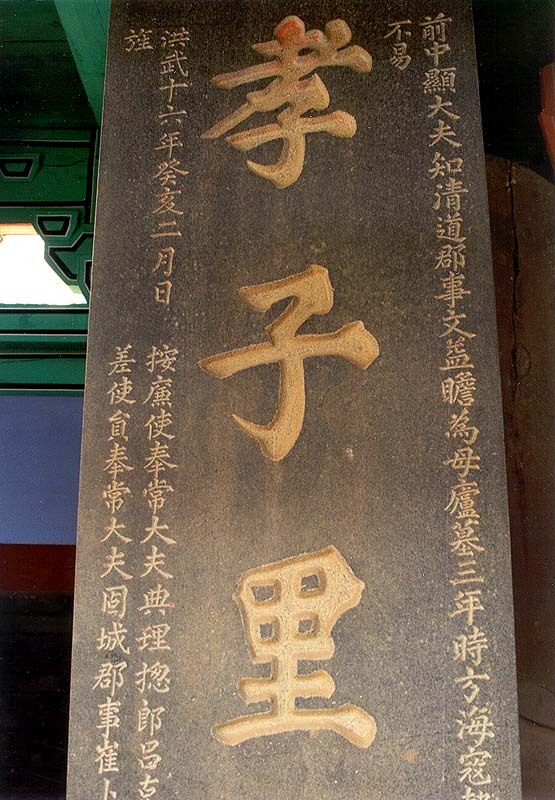 前中顯大夫知清道郡事文益瞻為母廬墓三年時方海寇
不易
孝子里
洪武十六年癸亥二月日
旌
按廉使奉常大夫典理摠郎呂
差使員奉常大夫固城郡事崔卜